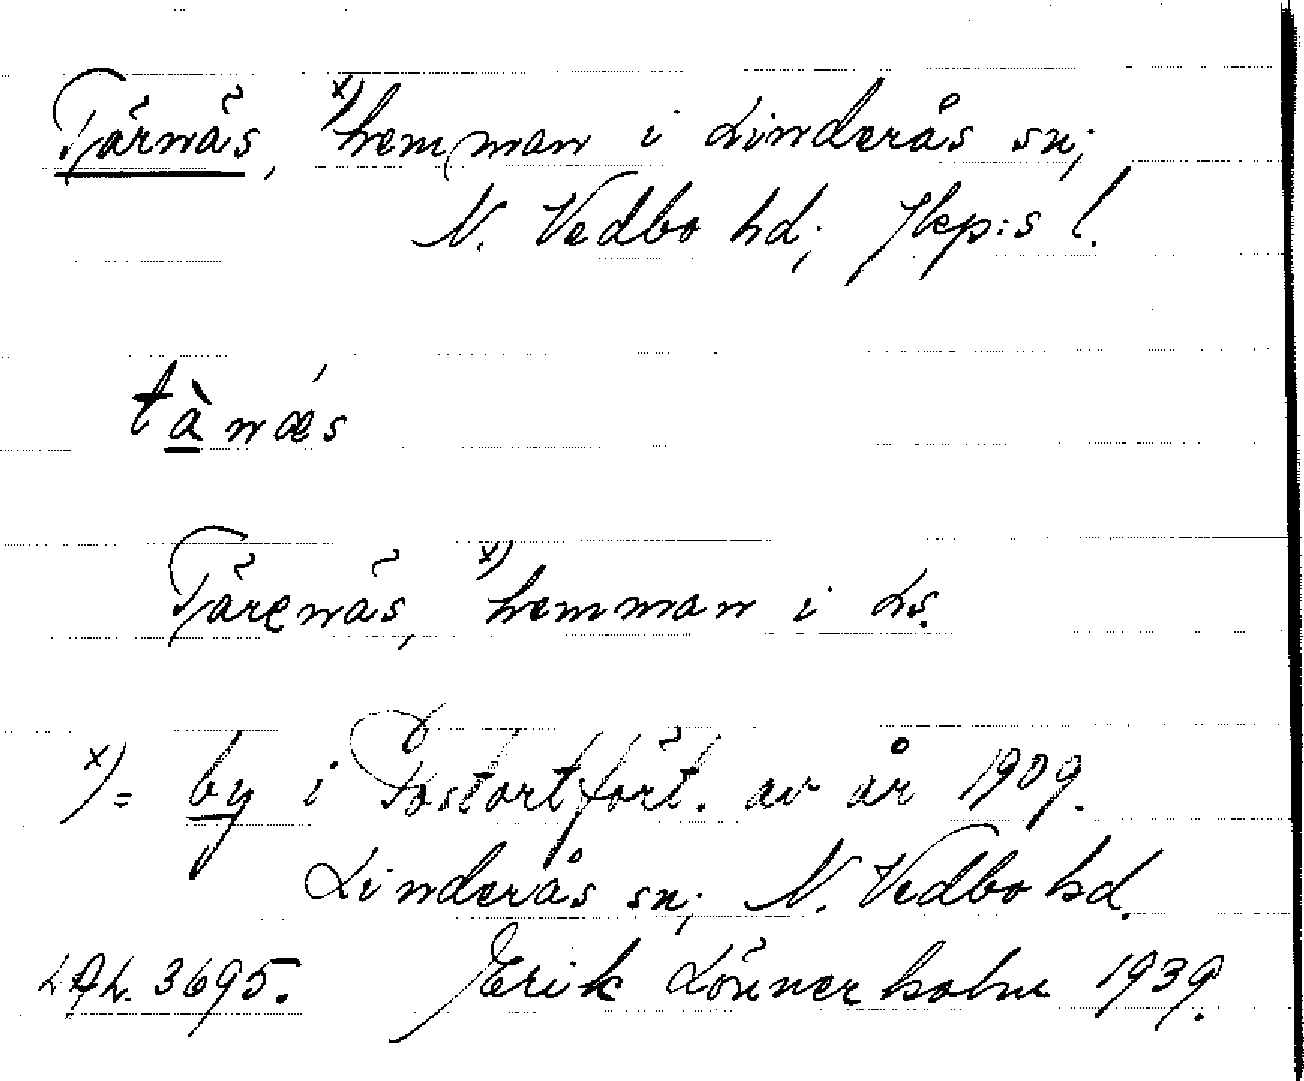 Tärnäs, x) hemman i Linderås sn;
N. Vedbo hd; Jkp:s l.
tànǽs
Tärenäs, x) hemman i Ls.
x) = by i Postortfört. av år 1909.
Linderås sn; N. Vedbo hd.
LAL. 3695. Erik Lönnerholm 1939.